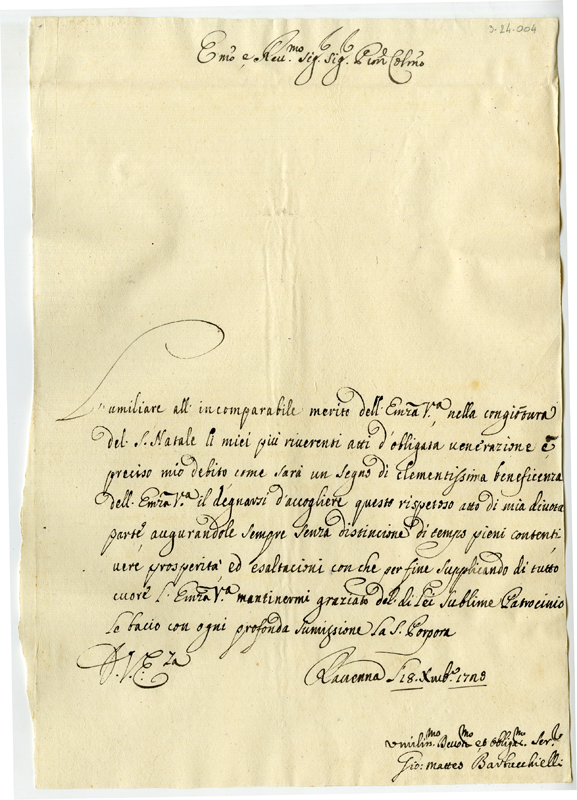 3-24-004
Emo e Reu.mo Sig.r Sig.r Pron Colmo
L'umiliare all'incomparabile merito dell'Emza V.a nella congiõtura
del S. Natale li miei più riverenti atti d'obligata venerazione è
preciso mio debito come sarà un segno di clementissima beneficenza
dell'Emza V.a il degnarsi d'accogliere questo rispetoso atto di mia divota
parte augurandole sempre senza distincione di tempo pieni contenti,
vere prosperità ed esaltacioni con che per fine supplicando di tutto
cuore l'Emza V.a mantinermi graziato del di Lei sublime Patrocinio
le bacio con ogni profonda sumissione la S. Porpora
D. V. E.za
Ravenna li 18. Xmb.e 1728
Umilin.mo Deuot.mo et obligat.mo Ser.e
Gio: Matteo Barbucchielli